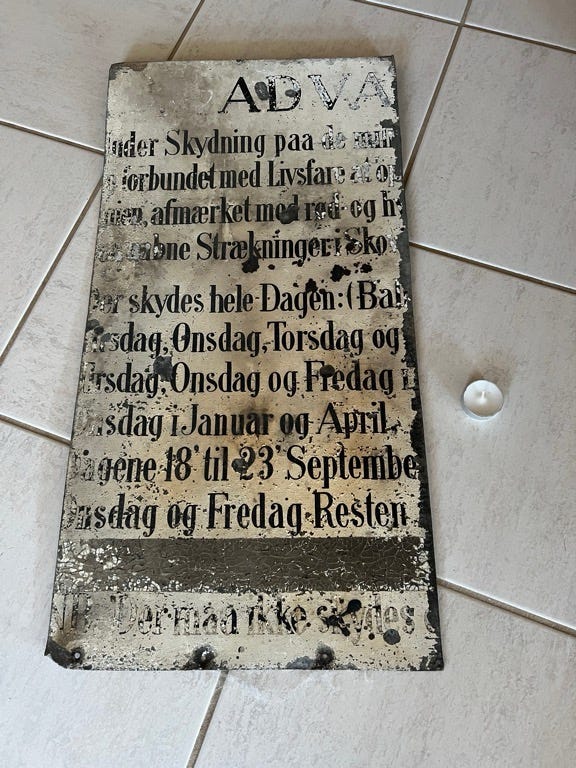 ADVA
nder Skydning paa de
forbundet med Livsfare at op
nen, afmærket med rød og h
aabne Strækninger i Sko
er skydes hele Dagen: (Bal
sdag, Onsdag, Torsdag og
rsdag, Onsdag og Fredag i
nsdag i Januar og April,
agene 18' til 23' Septembe
nsdag og Fredag Resten
NB. Der maa ikke skydes